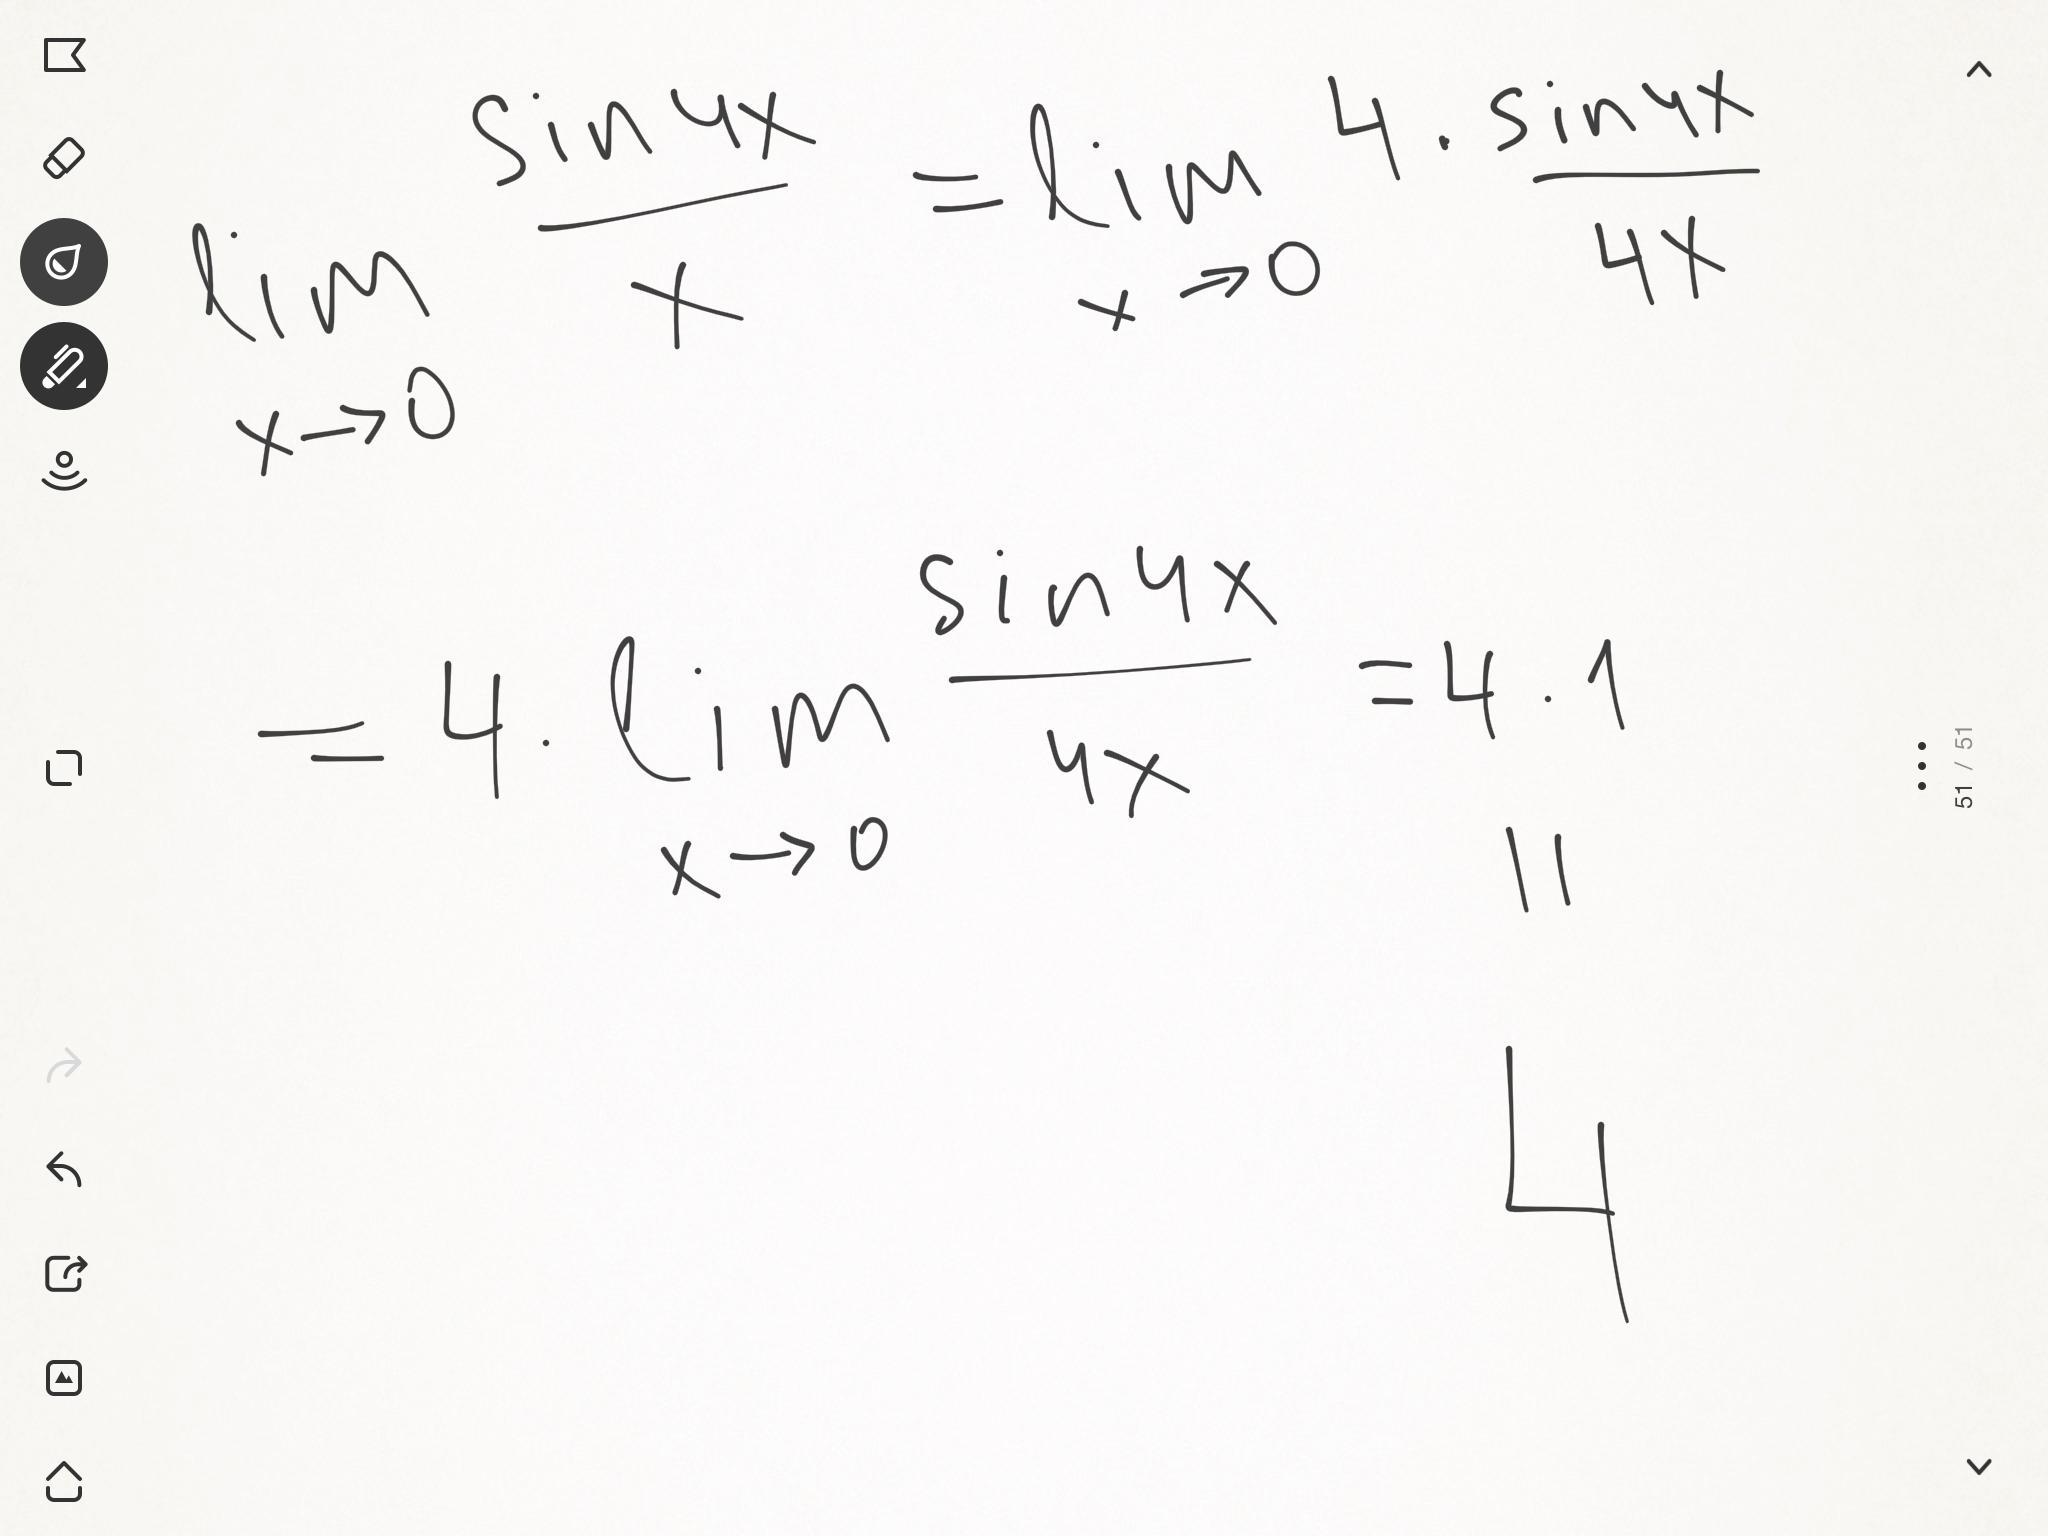 lim x→0 sin4x / x = lim x→0 4 · sin4x / 4x
= 4 · lim x→0 sin4x / 4x = 4 · 1
=
4
51 / 51